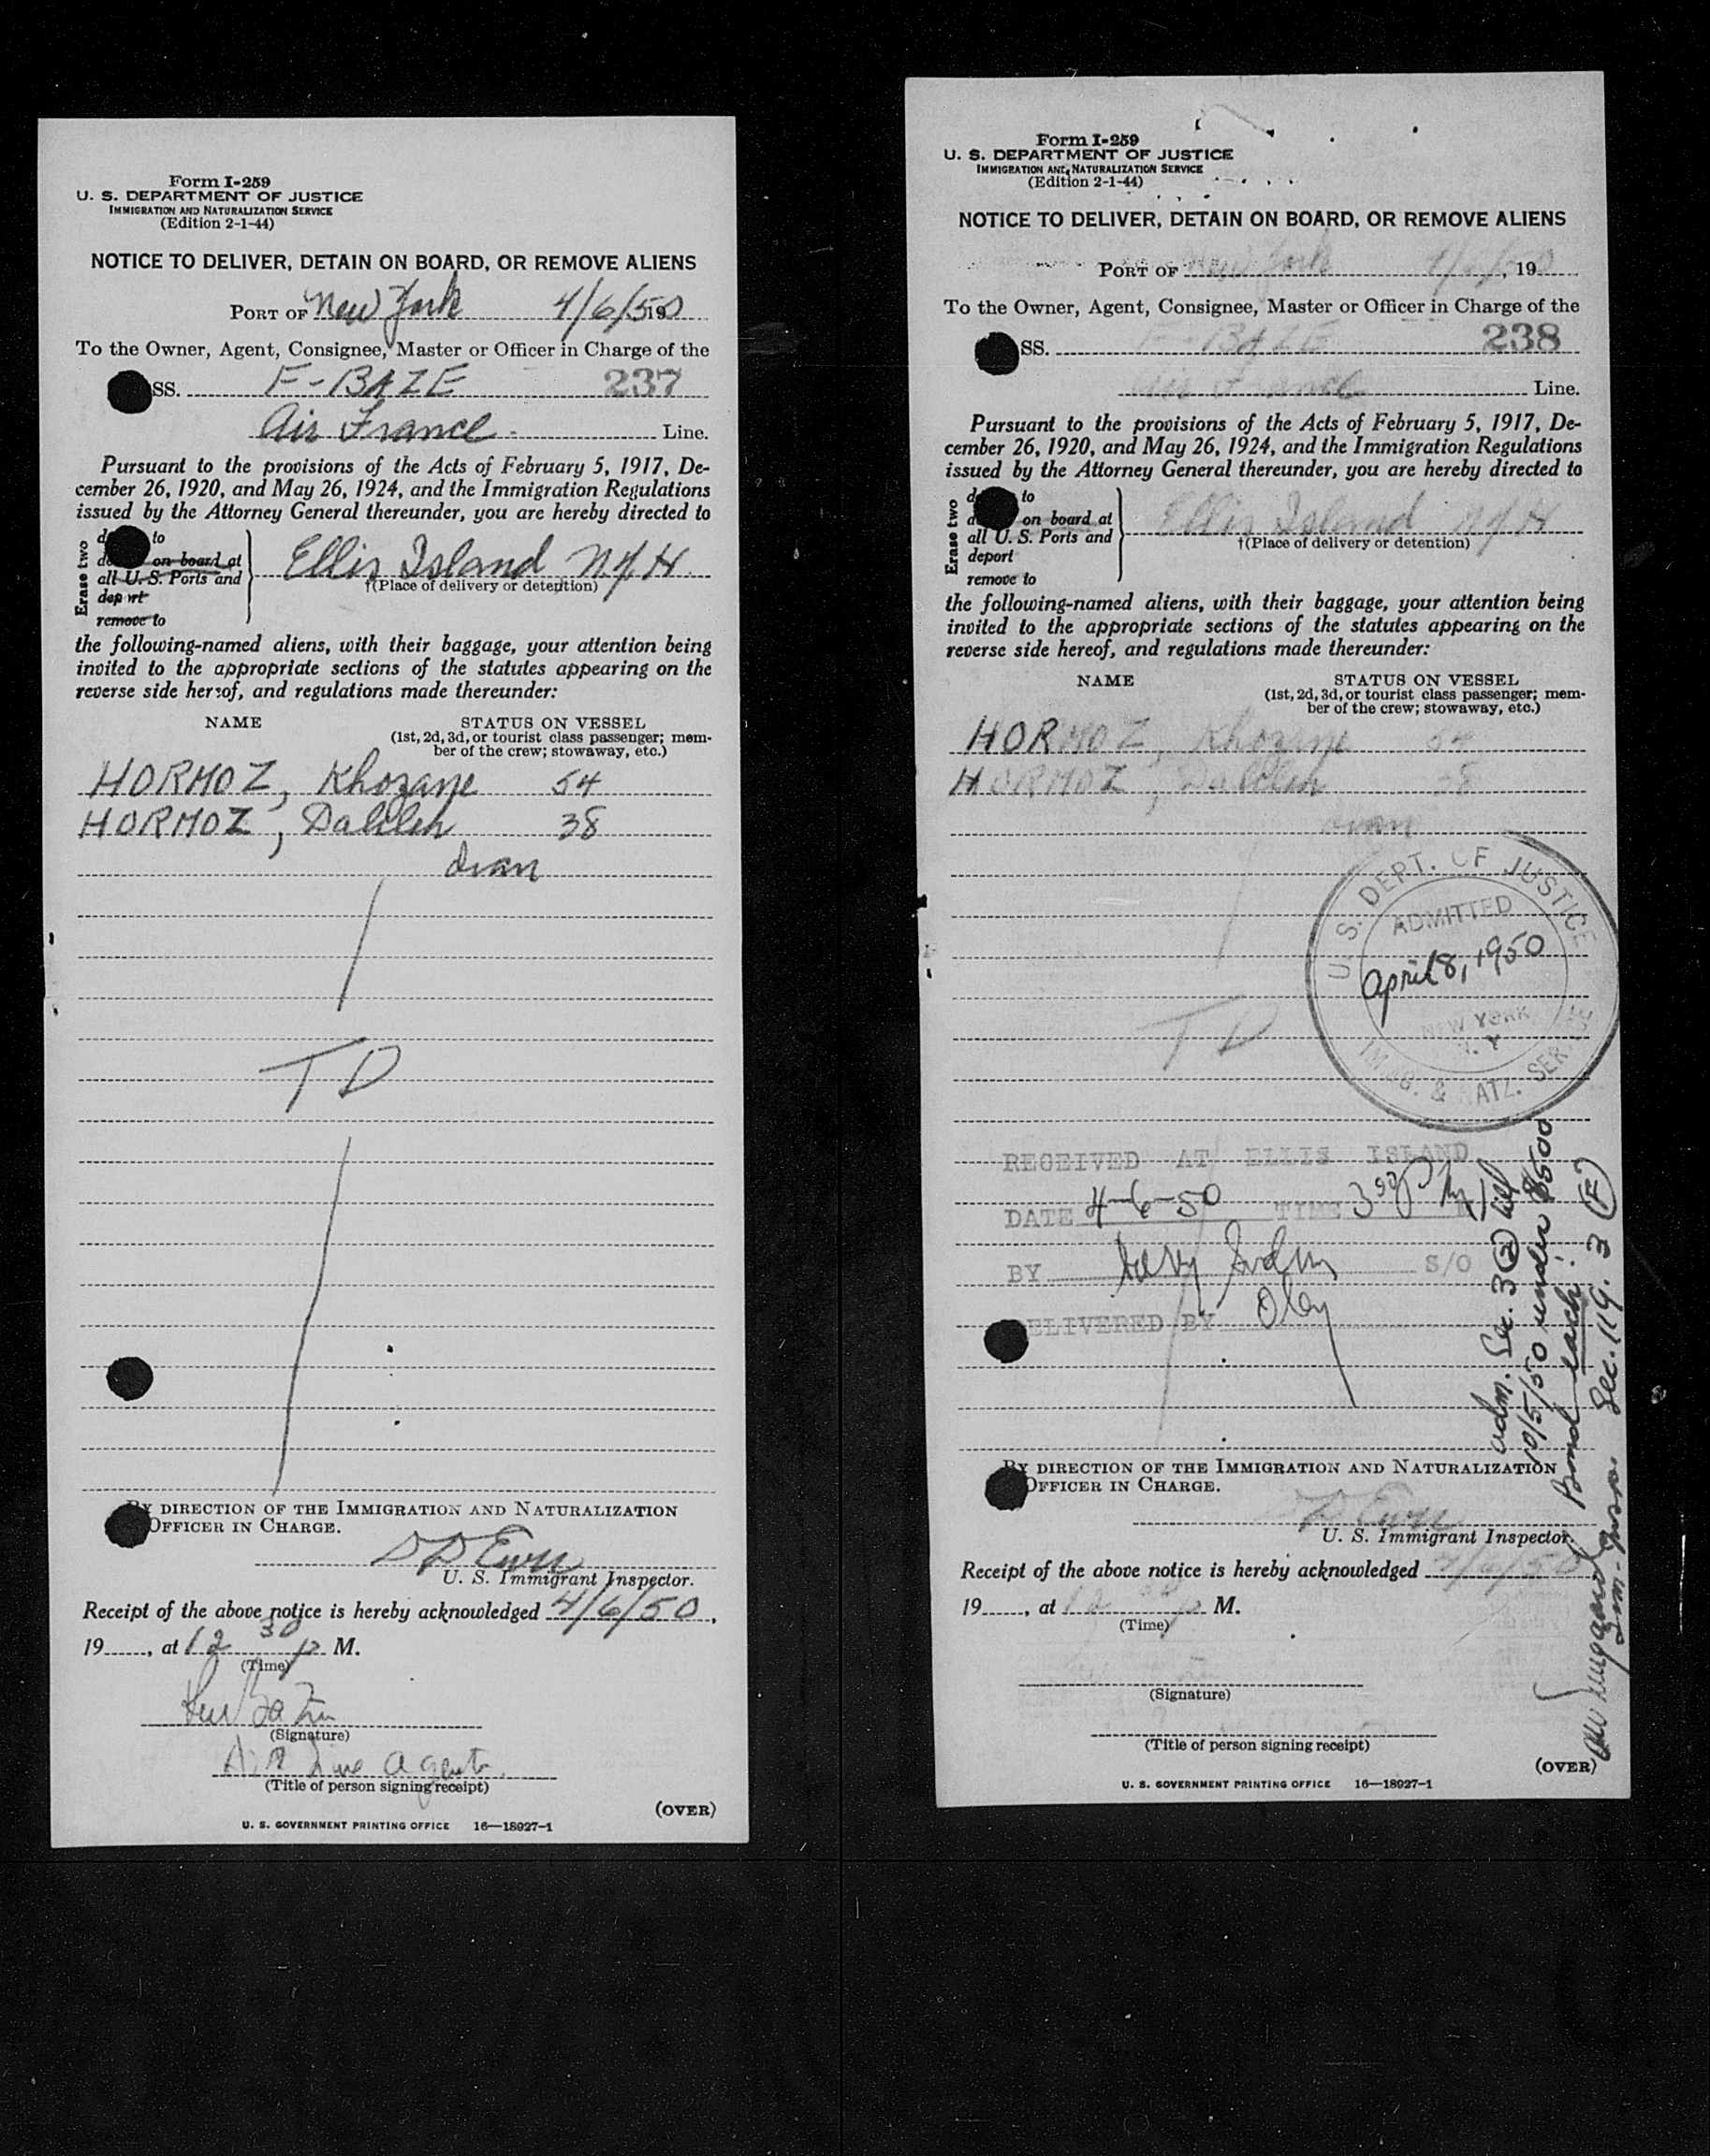 Form I-259
U. S. DEPARTMENT OF JUSTICE
IMMIGRATION AND NATURALIZATION SERVICE
(Edition 2-1-44)
NOTICE TO DELIVER, DETAIN ON BOARD, OR REMOVE ALIENS
PORT OF New York 4/6/50 19
To the Owner, Agent, Consignee, Master or Officer in Charge of the
SS. F-BAZE 237
Air France Line.
Pursuant to the provisions of the Acts of February 5, 1917, De-
cember 26, 1920, and May 26, 1924, and the Immigration Regulations
issued by the Attorney General thereunder, you are hereby directed to
Erase two
to
on board at
all U. S. Ports and
deport
remove to
Ellis Island N.Y.H.
†(Place of delivery or detention)
the following-named aliens, with their baggage, your attention being
invited to the appropriate sections of the statutes appearing on the
reverse side hereof, and regulations made thereunder:
NAME STATUS ON VESSEL
(1st, 2d, 3d, or tourist class passenger; mem-
ber of the crew; stowaway, etc.)
HORMOZ, Khozane 54
HORMOZ, Dalileh 38
Iran
TD
BY DIRECTION OF THE IMMIGRATION AND NATURALIZATION
OFFICER IN CHARGE.
U. S. Immigrant Inspector.
Receipt of the above notice is hereby acknowledged 4/6/50,
19, at 12 30 p M.
(Time)
(Signature)
Air Line Agent
(Title of person signing receipt)
(OVER)
U. S. GOVERNMENT PRINTING OFFICE 16—18927-1
Form I-259
U. S. DEPARTMENT OF JUSTICE
IMMIGRATION AND NATURALIZATION SERVICE
(Edition 2-1-44)
NOTICE TO DELIVER, DETAIN ON BOARD, OR REMOVE ALIENS
PORT OF New York 4/6/50, 19
To the Owner, Agent, Consignee, Master or Officer in Charge of the
SS. F-BAZE 238
Air France Line.
Pursuant to the provisions of the Acts of February 5, 1917, De-
cember 26, 1920, and May 26, 1924, and the Immigration Regulations
issued by the Attorney General thereunder, you are hereby directed to
Erase two
to
on board at
all U. S. Ports and
deport
remove to
Ellis Island N.Y.H
†(Place of delivery or detention)
the following-named aliens, with their baggage, your attention being
invited to the appropriate sections of the statutes appearing on the
reverse side hereof, and regulations made thereunder:
NAME STATUS ON VESSEL
(1st, 2d, 3d, or tourist class passenger; mem-
ber of the crew; stowaway, etc.)
HORMOZ, Khozane 54
HORMOZ, Dalileh 38
Iran
U. S. DEPT. OF JUSTICE
ADMITTED
April 8, 1950
NEW YORK
N. Y.
IMMIG. & NATZ. SERVICE
TD
RECEIVED AT ELLIS ISLAND
DATE 4-6-50 TIME 3 30 P M
BY S/O
DELIVERED BY
adm. Sec. 3 (2) til
10/5/50 under $500
Bond each!
Sec. 119. 3 (F)
BY DIRECTION OF THE IMMIGRATION AND NATURALIZATION
OFFICER IN CHARGE.
U. S. Immigrant Inspector.
Receipt of the above notice is hereby acknowledged 4/6/50
19, at 12 30 p M.
(Time)
(Signature)
(Title of person signing receipt)
(OVER)
U. S. GOVERNMENT PRINTING OFFICE 16—18927-1